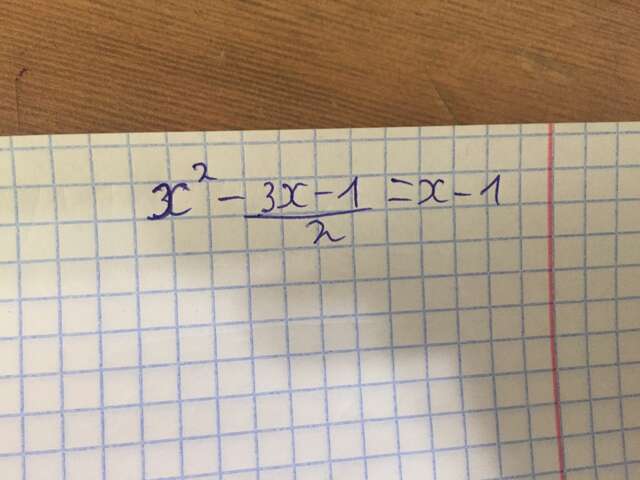 x² - (3x - 1)/2 = x - 1